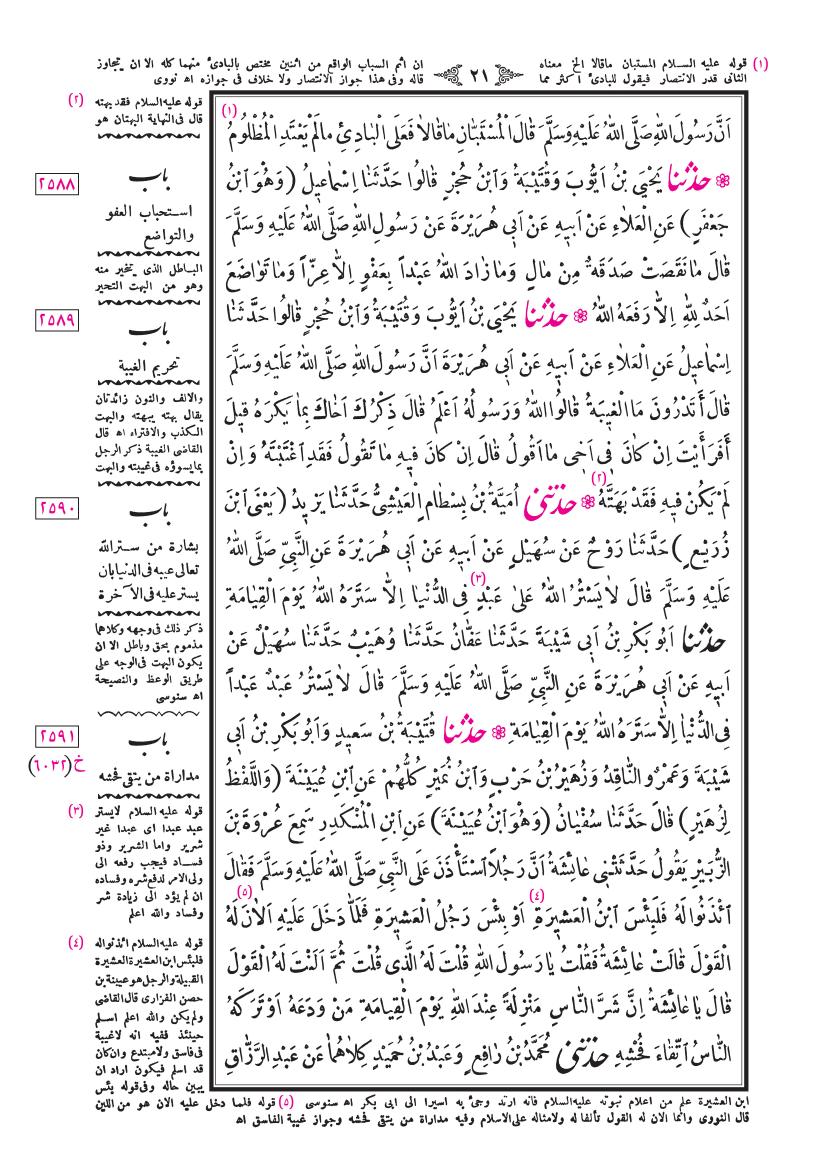 (١) قوله عليه السلام المستبان ماقالا الخ معناه ان اثم السباب الواقع من اثنين مختص بالبادئ منهما كله الا ان يتجاوز
الثانى قدر الانتصار فيقول للبادئ اكثر مما قاله وفى هذا جواز الانتصار ولا خلاف فى جوازه اه نووى
٢١
اَنَّ رَسُولَ اللهِ صَلَّى اللهُ عَلَيْهِ وَسَلَّمَ قَالَ الْمُسْتَبَّانِ مَا قَالاَ فَعَلَى الْبَادِئِ مَا لَمْ يَعْتَدِ الْمَظْلُومُ (١)
❁ حَدَّثَنَا يَحْيَى بْنُ اَيُّوبَ وَقُتَيْبَةُ وَابْنُ حُجْرٍ قَالُوا حَدَّثَنَا اِسْمَاعِيلُ (وَهُوَ ابْنُ
جَعْفَرٍ) عَنِ الْعَلاَءِ عَنْ اَبِيهِ عَنْ اَبِى هُرَيْرَةَ عَنْ رَسُولِ اللهِ صَلَّى اللهُ عَلَيْهِ وَسَلَّمَ
قَالَ مَا نَقَصَتْ صَدَقَةٌ مِنْ مَالٍ وَمَا زَادَ اللهُ عَبْداً بِعَفْوٍ اِلاَّ عِزّاً وَمَا تَوَاضَعَ
اَحَدٌ لِلهِ اِلاَّ رَفَعَهُ اللهُ ❁ حَدَّثَنَا يَحْيَى بْنُ اَيُّوبَ وَقُتَيْبَةُ وَابْنُ حُجْرٍ قَالُوا حَدَّثَنَا
اِسْمَاعِيلُ عَنِ الْعَلاَءِ عَنْ اَبِيهِ عَنْ اَبِى هُرَيْرَةَ اَنَّ رَسُولَ اللهِ صَلَّى اللهُ عَلَيْهِ وَسَلَّمَ
قَالَ أَتَدْرُونَ مَا الْغِيبَةُ قَالُوا اللهُ وَرَسُولُهُ اَعْلَمُ قَالَ ذِكْرُكَ اَخَاكَ بِمَا يَكْرَهُ قِيلَ
أَفَرَأَيْتَ اِنْ كَانَ فِى اَخِى مَا اَقُولُ قَالَ اِنْ كَانَ فِيهِ مَا تَقُولُ فَقَدِ اغْتَبْتَهُ وَاِنْ
لَمْ يَكُنْ فِيهِ فَقَدْ بَهَتَّهُ (٢) ❁ حَدَّثَنِى اُمَيَّةُ بْنُ بِسْطَامٍ الْعَيْشِىُّ حَدَّثَنَا يَزِيدُ (يَعْنِى ابْنَ
زُرَيْعٍ) حَدَّثَنَا رَوْحٌ عَنْ سُهَيْلٍ عَنْ اَبِيهِ عَنْ اَبِى هُرَيْرَةَ عَنِ النَّبِىِّ صَلَّى اللهُ
عَلَيْهِ وَسَلَّمَ قَالَ لاَ يَسْتُرُ اللهُ عَلَى عَبْدٍ (٣) فِى الدُّنْيَا اِلاَّ سَتَرَهُ اللهُ يَوْمَ الْقِيَامَةِ
حَدَّثَنَا اَبُو بَكْرِ بْنُ اَبِى شَيْبَةَ حَدَّثَنَا عَفَّانُ حَدَّثَنَا وُهَيْبٌ حَدَّثَنَا سُهَيْلٌ عَنْ
اَبِيهِ عَنْ اَبِى هُرَيْرَةَ عَنِ النَّبِىِّ صَلَّى اللهُ عَلَيْهِ وَسَلَّمَ قَالَ لاَ يَسْتُرُ عَبْدٌ عَبْداً
فِى الدُّنْيَا اِلاَّ سَتَرَهُ اللهُ يَوْمَ الْقِيَامَةِ ❁ حَدَّثَنَا قُتَيْبَةُ بْنُ سَعِيدٍ وَاَبُو بَكْرِ بْنُ اَبِى
شَيْبَةَ وَعَمْرٌو النَّاقِدُ وَزُهَيْرُ بْنُ حَرْبٍ وَابْنُ نُمَيْرٍ كُلُّهُمْ عَنِ ابْنِ عُيَيْنَةَ (وَاللَّفْظُ
لِزُهَيْرٍ) قَالَ حَدَّثَنَا سُفْيَانُ (وَهُوَ ابْنُ عُيَيْنَةَ) عَنِ ابْنِ الْمُنْكَدِرِ سَمِعَ عُرْوَةَ بْنَ
الزُّبَيْرِ يَقُولُ حَدَّثَتْنِى عَائِشَةُ اَنَّ رَجُلاً اسْتَأْذَنَ عَلَى النَّبِىِّ صَلَّى اللهُ عَلَيْهِ وَسَلَّمَ فَقَالَ
ائْذَنُوا لَهُ فَلَبِئْسَ ابْنُ الْعَشِيرَةِ (٤) اَوْ بِئْسَ رَجُلُ الْعَشِيرَةِ فَلَمَّا دَخَلَ عَلَيْهِ (٥) اَلاَنَ لَهُ
الْقَوْلَ قَالَتْ عَائِشَةُ فَقُلْتُ يَا رَسُولَ اللهِ قُلْتَ لَهُ الَّذِى قُلْتَ ثُمَّ اَلَنْتَ لَهُ الْقَوْلَ
قَالَ يَا عَائِشَةُ اِنَّ شَرَّ النَّاسِ مَنْزِلَةً عِنْدَ اللهِ يَوْمَ الْقِيَامَةِ مَنْ وَدَعَهُ اَوْ تَرَكَهُ
النَّاسُ اتِّقَاءَ فُحْشِهِ حَدَّثَنِى مُحَمَّدُ بْنُ رَافِعٍ وَعَبْدُ بْنُ حُمَيْدٍ كِلاَهُمَا عَنْ عَبْدِ الرَّزَّاقِ
(٢) قوله عليه السلام فقد بهته
قال فى النهاية البهتان هو
٢٥٨٨
باب
استحباب العفو
والتواضع
الباطل الذى يتحير منه
وهو من البهت التحير
٢٥٨٩
باب
تحريم الغيبة
والالف والنون زائدتان
يقال بهته يبهته والبهت
الكذب والافتراء اه قال
القاضى الغيبة ذكر الرجل
بما يسوؤه فى غيبته والبهت
٢٥٩٠
باب
بشارة من ستر الله
تعالى عيبه فى الدنيا بان
يستر عليه فى الآخرة
ذكر ذلك فى وجهه وكلاهما
مذموم بحق وباطل الا ان
يكون البهت فى الوجه على
طريق الوعظ والنصيحة
اه سنوسى
٢٥٩١
خ (٦٠٣٢)
باب
مداراة من يتقى فحشه
(٣) قوله عليه السلام لايستر
عبد عبدا اى عبدا غير
شرير واما الشرير وذو
فساد فيجب رفعه الى
ولى الامر لدفع شره وفساده
ان لم يؤد الى زيادة شر
وفساد والله اعلم
(٤) قوله عليه السلام ائذنوا له
فلبئس ابن العشيرة العشيرة
القبيلة والرجل هو عيينة بن
حصن الفزارى قال القاضى
ولم يكن والله اعلم اسلم
حينئذ ففيه انه لاغيبة
فى فاسق ولا مبتدع وان كان
قد اسلم فيكون اراد ان
يبين حاله وفى قوله بئس
ابن العشيرة علم من اعلام نبوته عليه السلام فانه ارتد وجئ به اسيرا الى ابى بكر اه سنوسى (٥) قوله فلما دخل عليه الان هو من اللين
قال النووى وانما الان له القول تألفا له ولامثاله على الاسلام وفيه مداراة من يتقى فحشه وجواز غيبة الفاسق اه